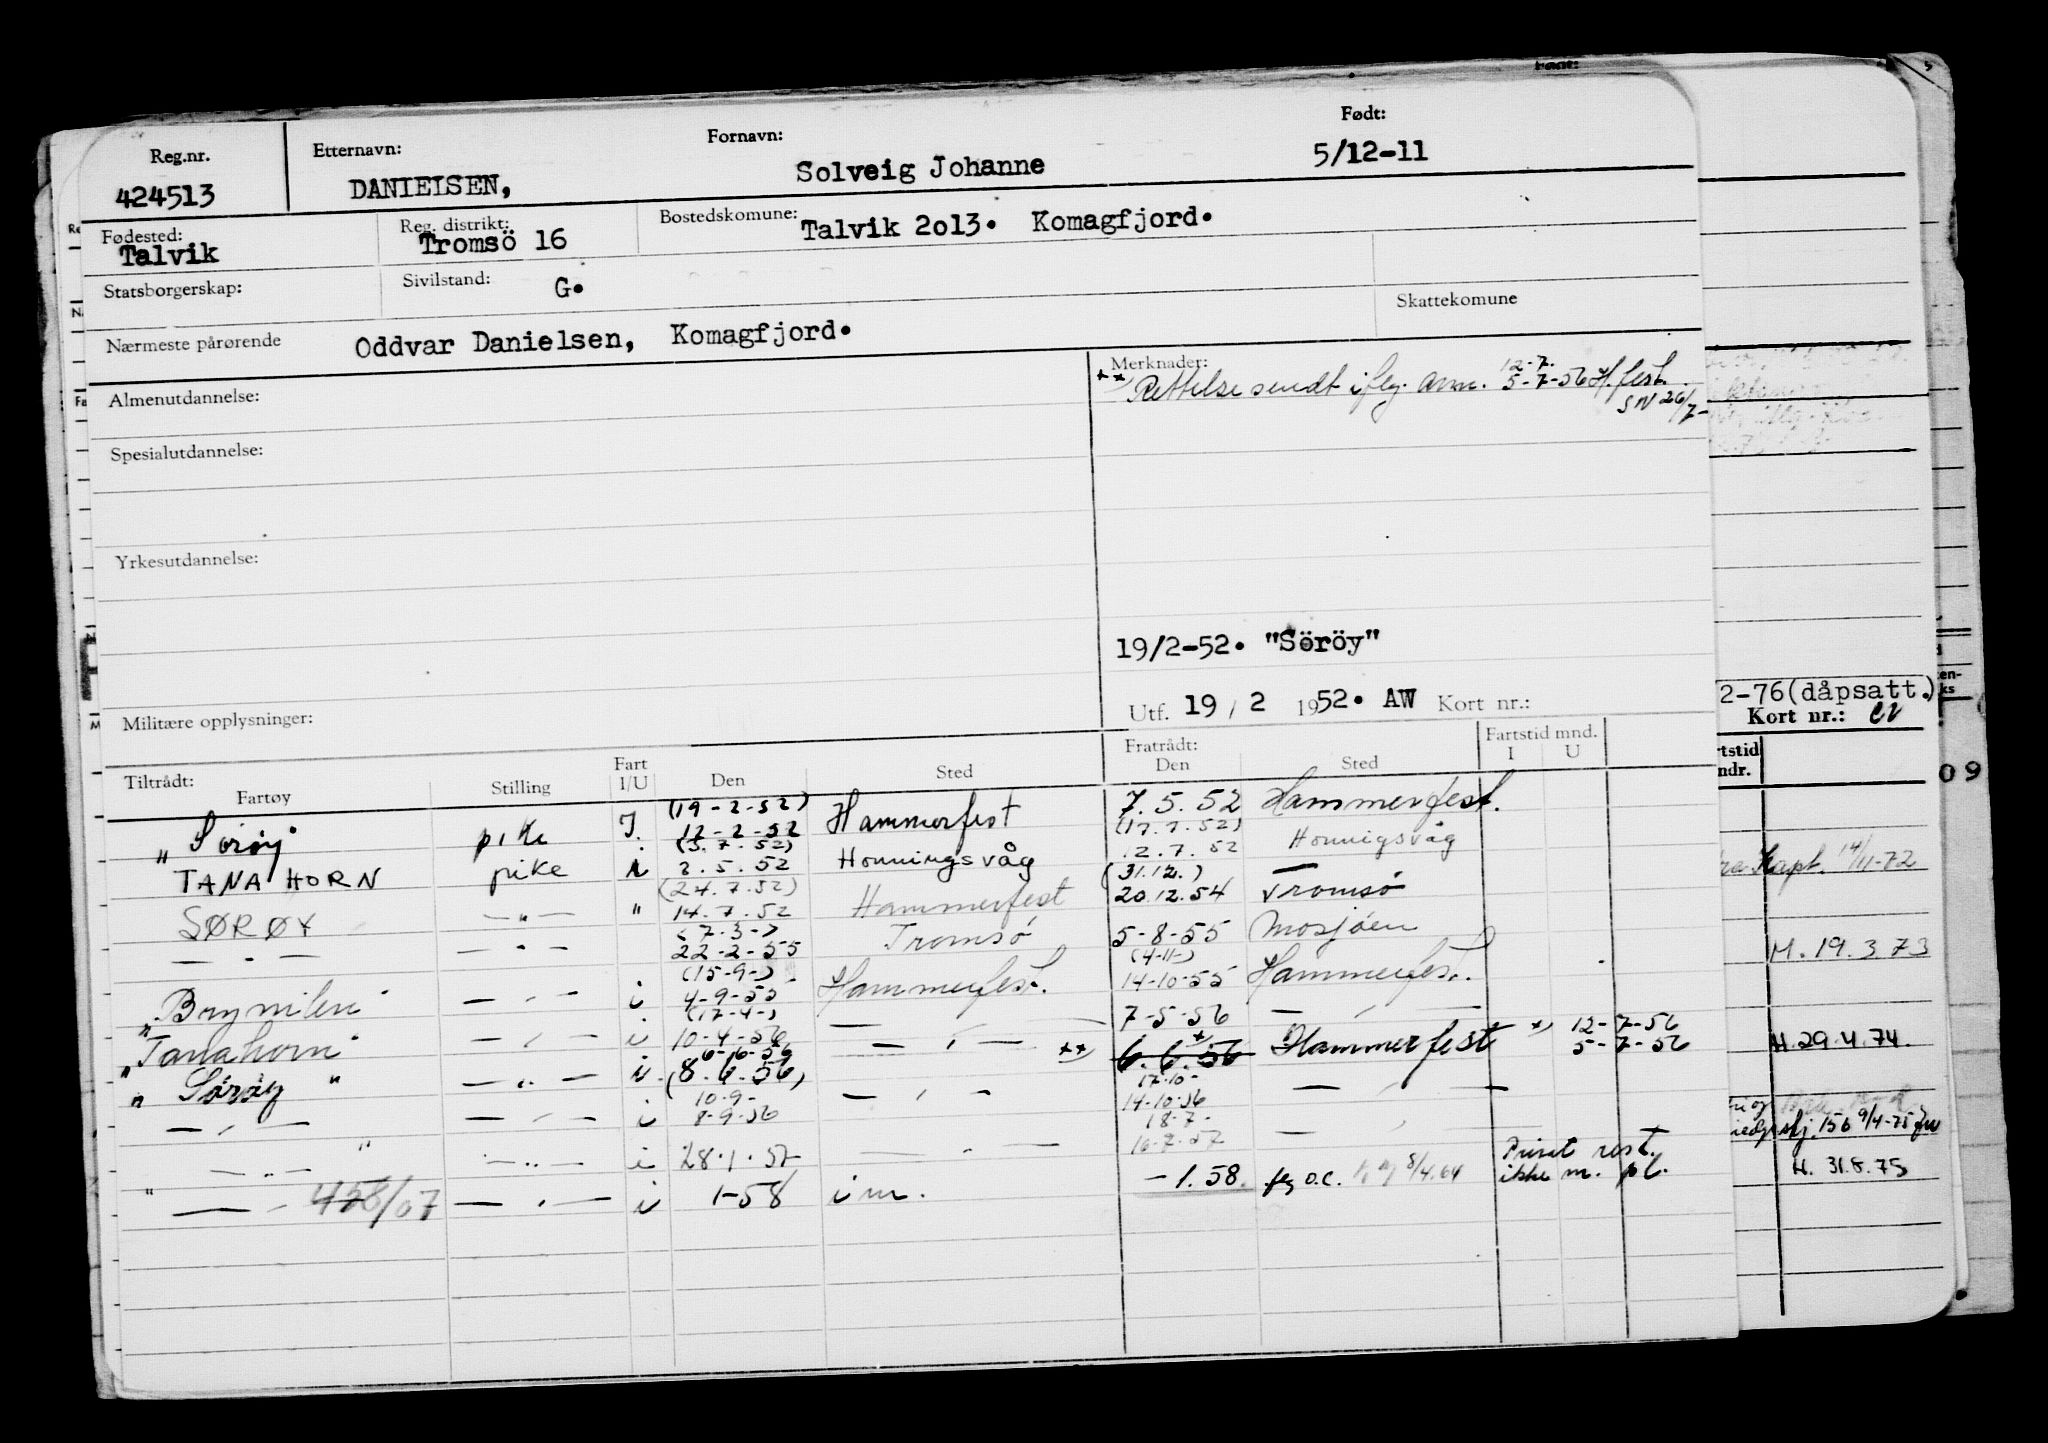 Reg.nr. Etternavn: Fornavn: Født:
424513 DANIELSEN, Solveig Johanne 5/12-11
Fødested: Reg. distrikt: Bostedskomune:
Talvik Tromsö 16 Talvik 2o13. Komagfjord.
Statsborgerskap: Sivilstand: G. Skattekomune
Nærmeste pårørende Oddvar Danielsen, Komagfjord.
Almenutdannelse: Merknader:
12-7.
** Rettelse sendt iflg. anm. 5-7-56 H.fest.
SN 26/7-
Spesialutdannelse:
Yrkesutdannelse:
19/2-52. "Söröy"
Militære opplysninger: Utf. 19 / 2 1952. AW Kort nr.:
Tiltrådt: Fartøy Stilling Fart I/U Den Sted Fratrådt: Den Sted Fartstid mnd. I U
(19-2-52)
"Sørøy" pike I. 12-2-52 Hammerfest 7.5.52 Hammerfest.
(3.7.52) (17.7.52)
TANAHORN pike i 2.5.52 Honningsvåg 12.7.52 Honnigsvåg
(24.7.52) (31.12.)
SØRØY — " — " 14.7.52 Hammerfest 20.12.54 Tromsø
— " — — " — 22-2-55 Tromsø 5-8-55 Mosjøen
(15-9-) (4-11-)
"Brynilen" — " — i 4-9-55 Hammerfest. 14-10-55 Hammerfest.
(17-4-)
"Tanahorn" — " — i 10-4-56 — " — 7-5-56 — " —
6-6-56 * *) 12-7-56
" Sørøy " — " — i (8.6.56) — " — **) 6.6.56 Hammerfest 5-7-56
10-9- 17-10-
— " — — " — i 8-9-56 — " — 14-10-56 — " —
18-7-
— " — " — " — i 28.1.57 — " — 16-7-57 — " —
" — " — 458/07 — " — i 1-58 i m. -1.58. flg o.c. 8/4.64 Privat rest.
ikke m. pl.
2-76(dåpsatt.)
Kort nr.:
Kapt. 14/11-72
M. 19.3.73
H. 29.4.74.
156 9/4-75
H. 31.8.75
09